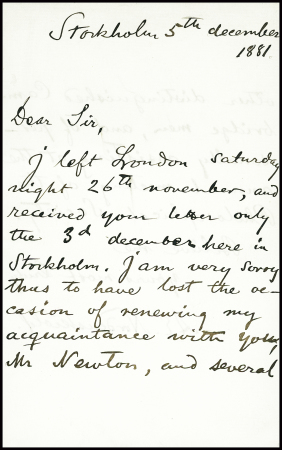 Stockholm 5th december
1881.
Dear Sir,
J left London saturday
night 26th november, and
received your letter only
the 3d december here in
Stockholm. J am very sorry
thus to have lost the oc-
casion of renewing my
acquaintance with you,
Mr Newton, and several